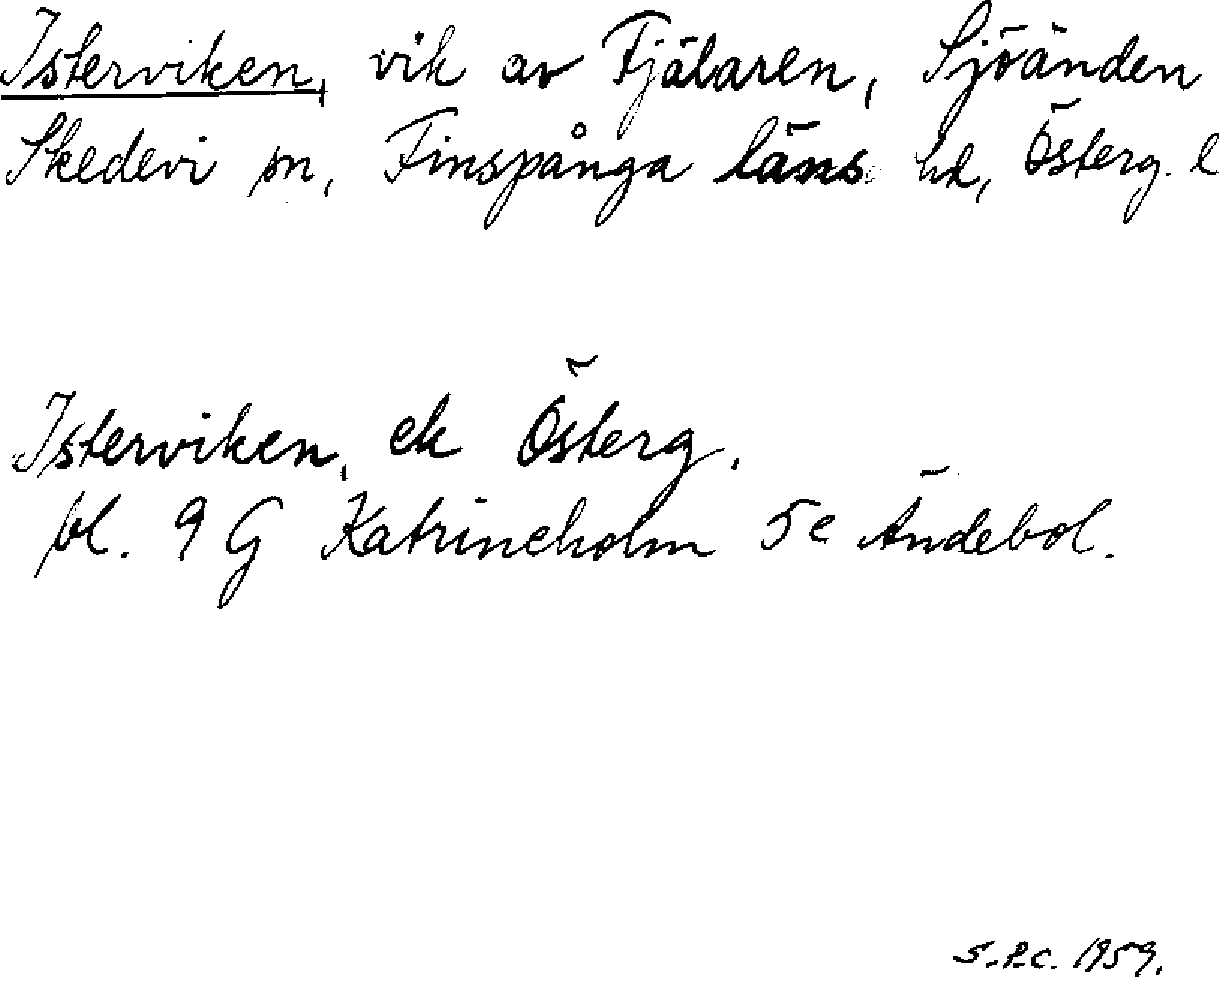 Isterviken, vik av Fjälaren, Sjöänden
Skedevi sn, Finspånga läns hd, Österg. l
Isterviken, ek Österg.
bl. 9 G Katrineholm 5e Ändebol.
S.P.C. 1959.